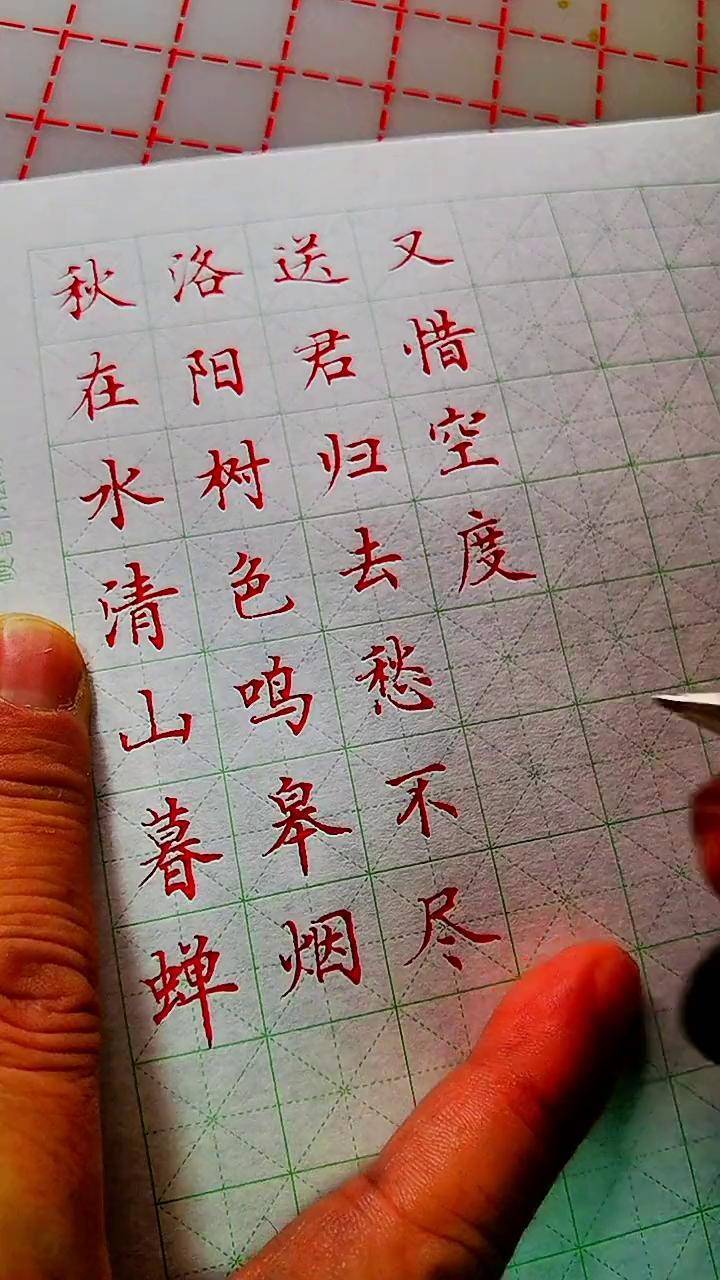 秋在水清山暮蝉
洛阳树色鸣皋烟
送君归去愁不尽
又惜空度